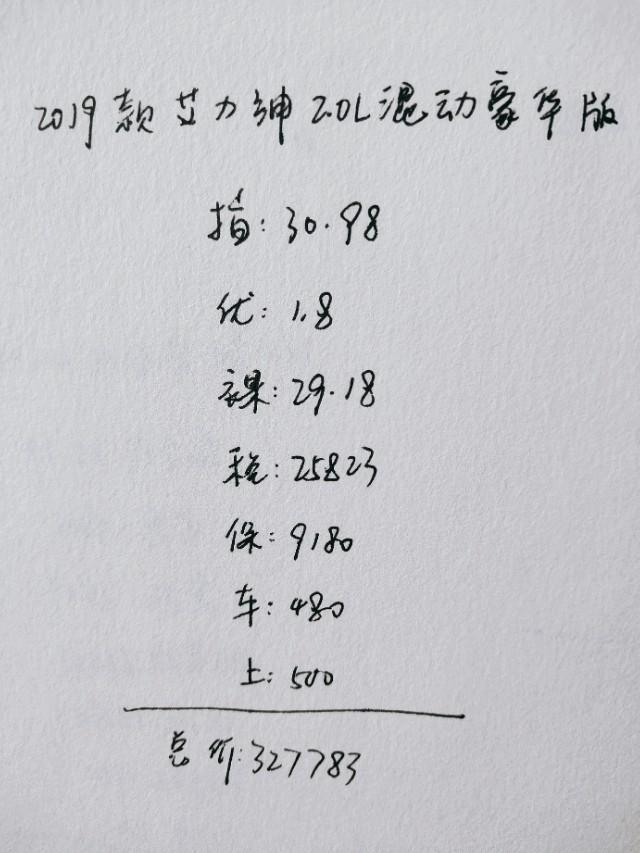 2019款艾力绅2.0L混动豪华版
指:30.98
优:1.8
裸:29.18
税:25823
保:9180
车:480
上:500
总价:327783